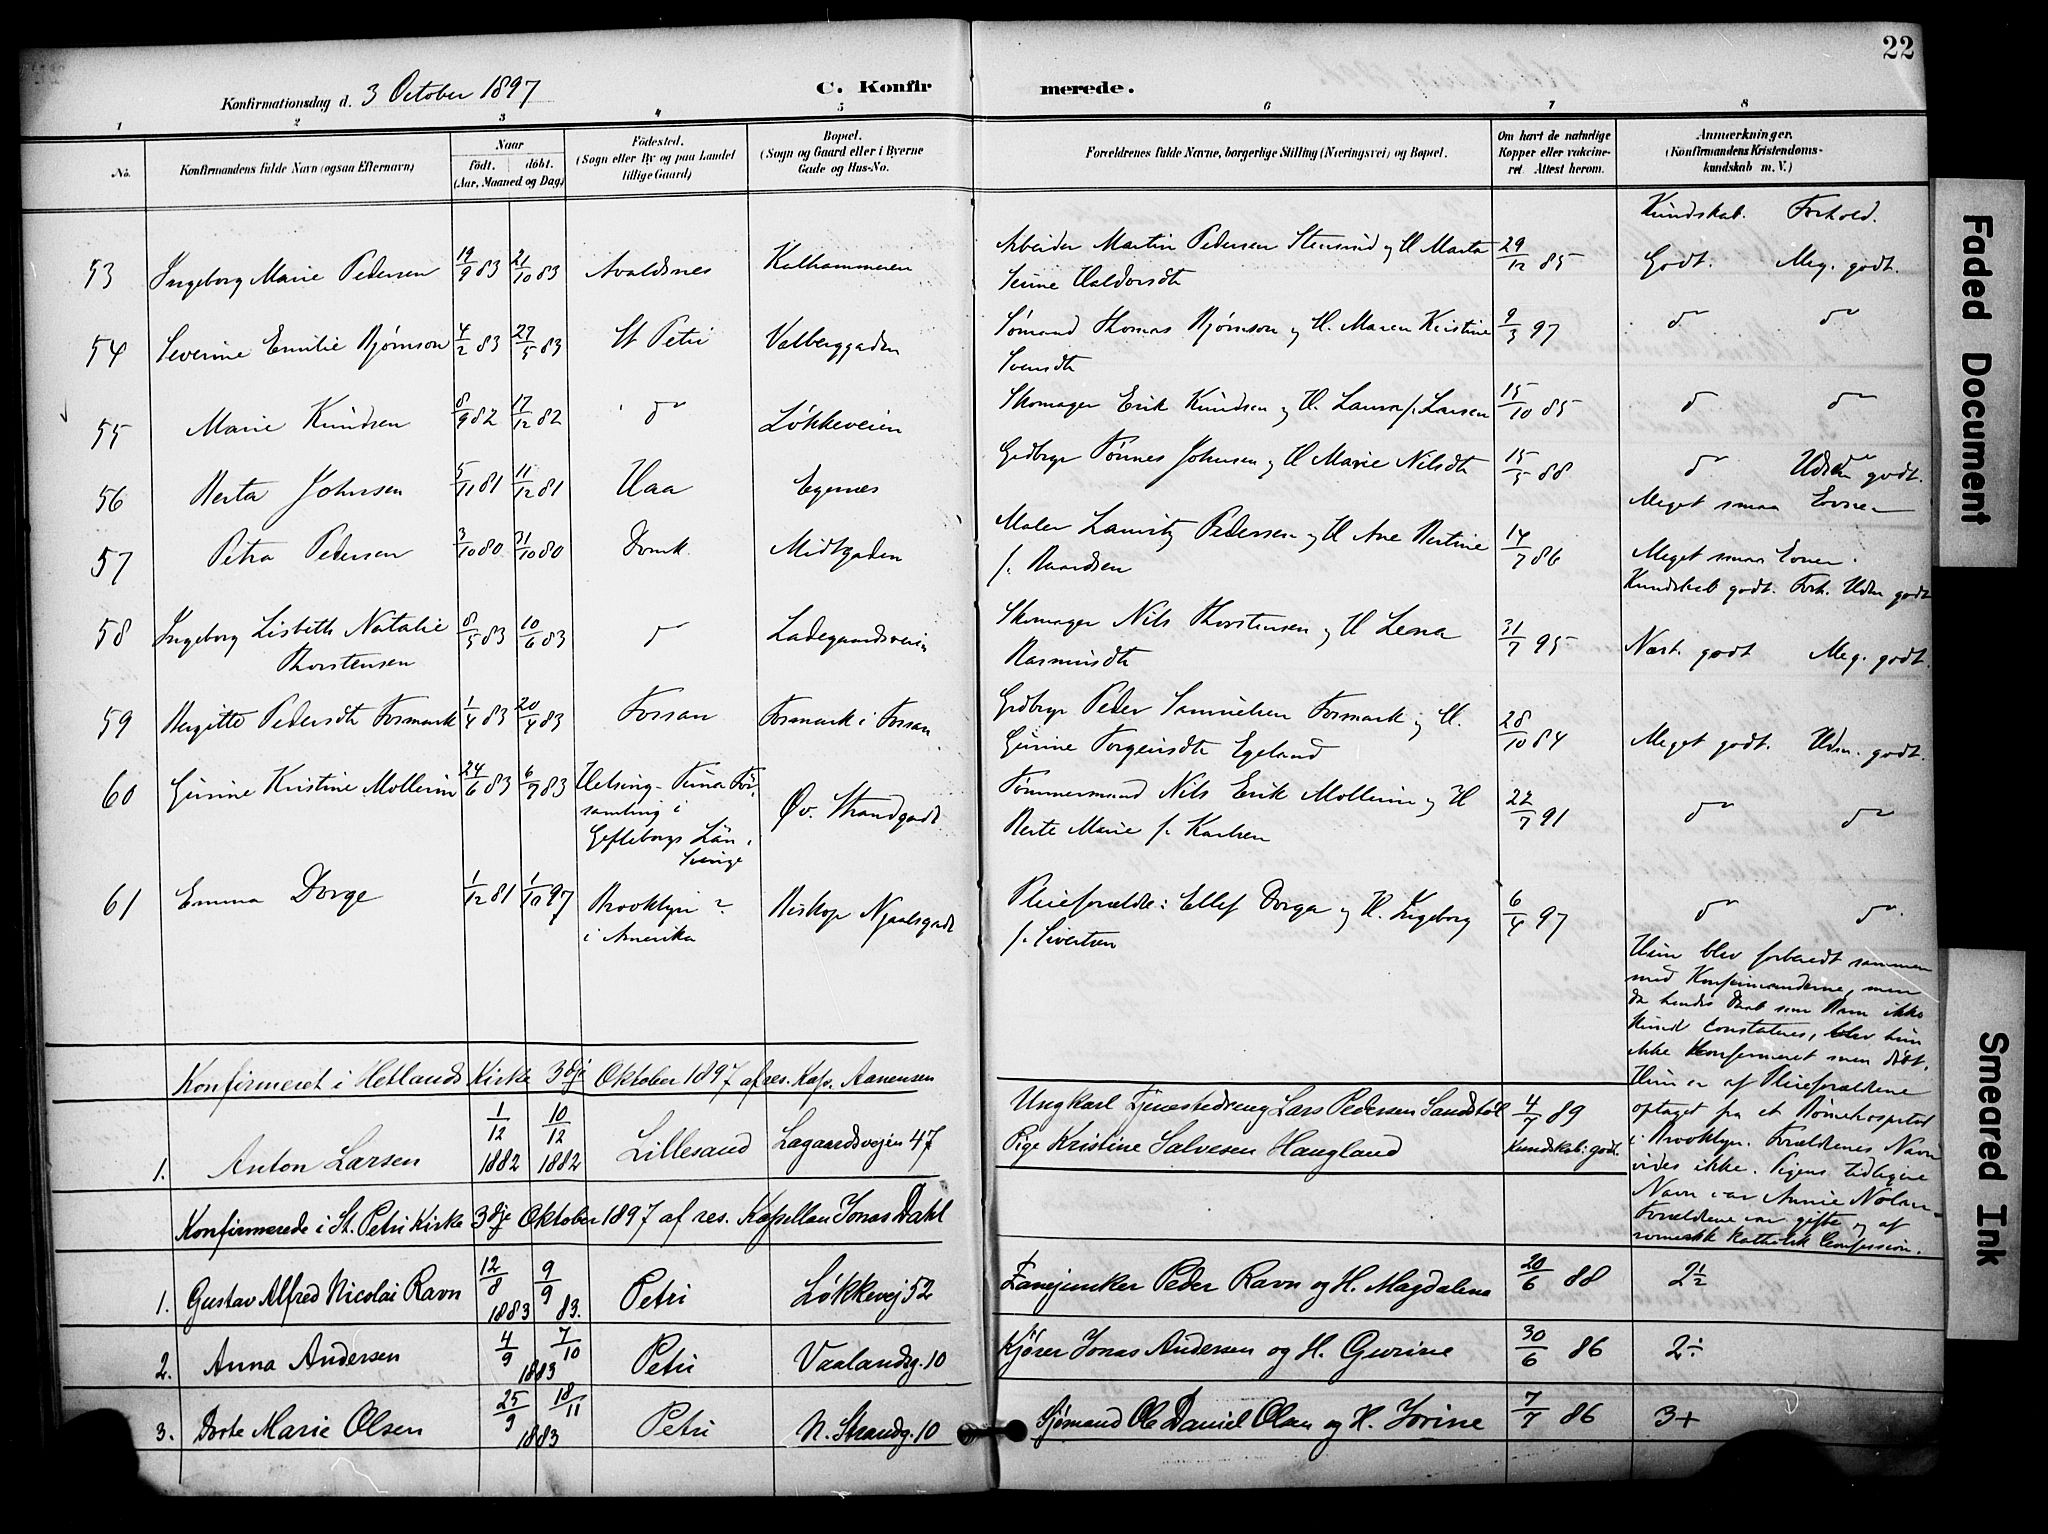 22
Konfirmationsdag d. 3 October 1897
C. Konfirmerede.
1 2 3 4 5 6 7 8
No. Konfirmandens fulde Navn (ogsaa Efternavn)
Naar født. døbt. (Aar, Maaned og Dag)
Födested. (Sogn eller By og paa Landet tillige Gaard)
Bopæl. (Sogn og Gaard eller i Byerne Gade og Hus-No.
Forældrenes fulde Navne, borgerlige Stilling (Næringsvei) og Bopæl.
Om havt de naturlige Kopper eller vakcineret. Attest herom.
Anmærkninger. (Konfirmandens Kristendomskundskab m. V.)
Kundskab. Forhold.
53 Ingeborg Marie Pedersen 19/9 83 21/10 83 Avaldsnes Kalhammeren Arbeider Martin Pedersen Stensrud og H Marta 29/12 85 Godt. Meg. godt.
Serine Haldorsdt
54 Severine Emilie Bjørnson 4/2 83 27/5 83 St Petri Valberggaden Sømand Thomas Bjørnson og H. Maren Kristine 9/3 97 do do
Svendsdt
55 Marie Knudsen 8/9 82 17/12 82 do Løkkeveien Skomager Erik Knudsen og H. Laura f. Larsen 15/10 85 do do
56 Berta Johnsen 5/11 81 11/12 81 Haa Egenes Grdbrgr Tønnes Johnsen og H Marie Nilsdt 15/5 88 do Udm godt.
Meget smaa Evner
57 Petra Pedersen 3/10 80 31/10 80 Domk Midtgaden Maler Lauritz Pedersen og H Ane Bertine 14/7 86 Meget smaa Evner.
f. Baardsen
Kundskab godt. Forh. Udm godt
58 Ingeborg Lisbeth Natalie 8/5 83 10/6 83 do Ladegaardsveien Skomager Nils Thorstensen og H Lena 31/7 95 Næst. godt Meg. godt.
Thorstensen
Rasmusdt
59 Bergitte Pedersdt Fosmark 1/4 83 20/4 83 Fossan Fosmark i Fossan Grdbrgr Peder Samuelsen Fosmark og H. 28/10 84 Meget godt. Udm. godt.
Gurine Torgeirsdt Egeland
60 Gurine Kristine Mollerin 24/6 83 6/7 83 Helsing-Tuna Församling i Gefleborgs Län, Sverige Øv. Strandgadt Tømmermand Nils Erik Mollerin og H 22/7 91 do do
Berte Marie f. Karlsen
61 Emma Dorge 1/12 81 1/10 97 Brooklyn? i Amerika Biskop Njaalsgade Pleieforældre: Ellef Dorge og H. Ingeborg 6/4 97 do do.
f. Sivertsen
Hun blev forberedt sammen
med Konfirmanderne, men
da hendes Daab som Barn ikke
kund constateres, blev hun
ikke konfirmeret men døbt.
Hun er af Pleieforældrene
optaget fra et Børnehospital
i Brooklyn. Forældrenes Navn
vides ikke. Pigens tidligere
Navn var Annie Nolan.
Forældrene var gifte og af
romersk katholsk Confession.
Konfirmeret i Hetlands Kirke 3dje Oktober 1897 af res. Kap. Aanensen
1. Anton Larsen 1/12 1882 10/12 1882 Lillesand Lagaardsvejen 47 Ungkarl Tjenestedreng Lars Pedersen Sandstøl 4/7 89
Pige Kristine Salvesen Haugland Kundskab: godt.
Konfirmerede i St. Petri Kirke 3dje Oktober 1897 af res. Kapellan Jonas Dahl
1. Gustav Alfred Nicolai Ravn 12/8 1883 9/9 83. Petri Løkkevej 52 Fanejunker Peder Ravn og H. Magdalena 20/6 88 2 1/2
2. Anna Andersen 4/9 7/10 1883 Petri Vaalandsg. 10 Kjører Jonas Andersen og H. Gurine 30/6 86 2÷
3. Dorte Marie Olsen 25/9 18/11 1883 Petri N. Strandg. 10 Sjømand Ole Daniel Olsen og H. Jorine 7/7 86 3+
Faded Document
Smeared Ink